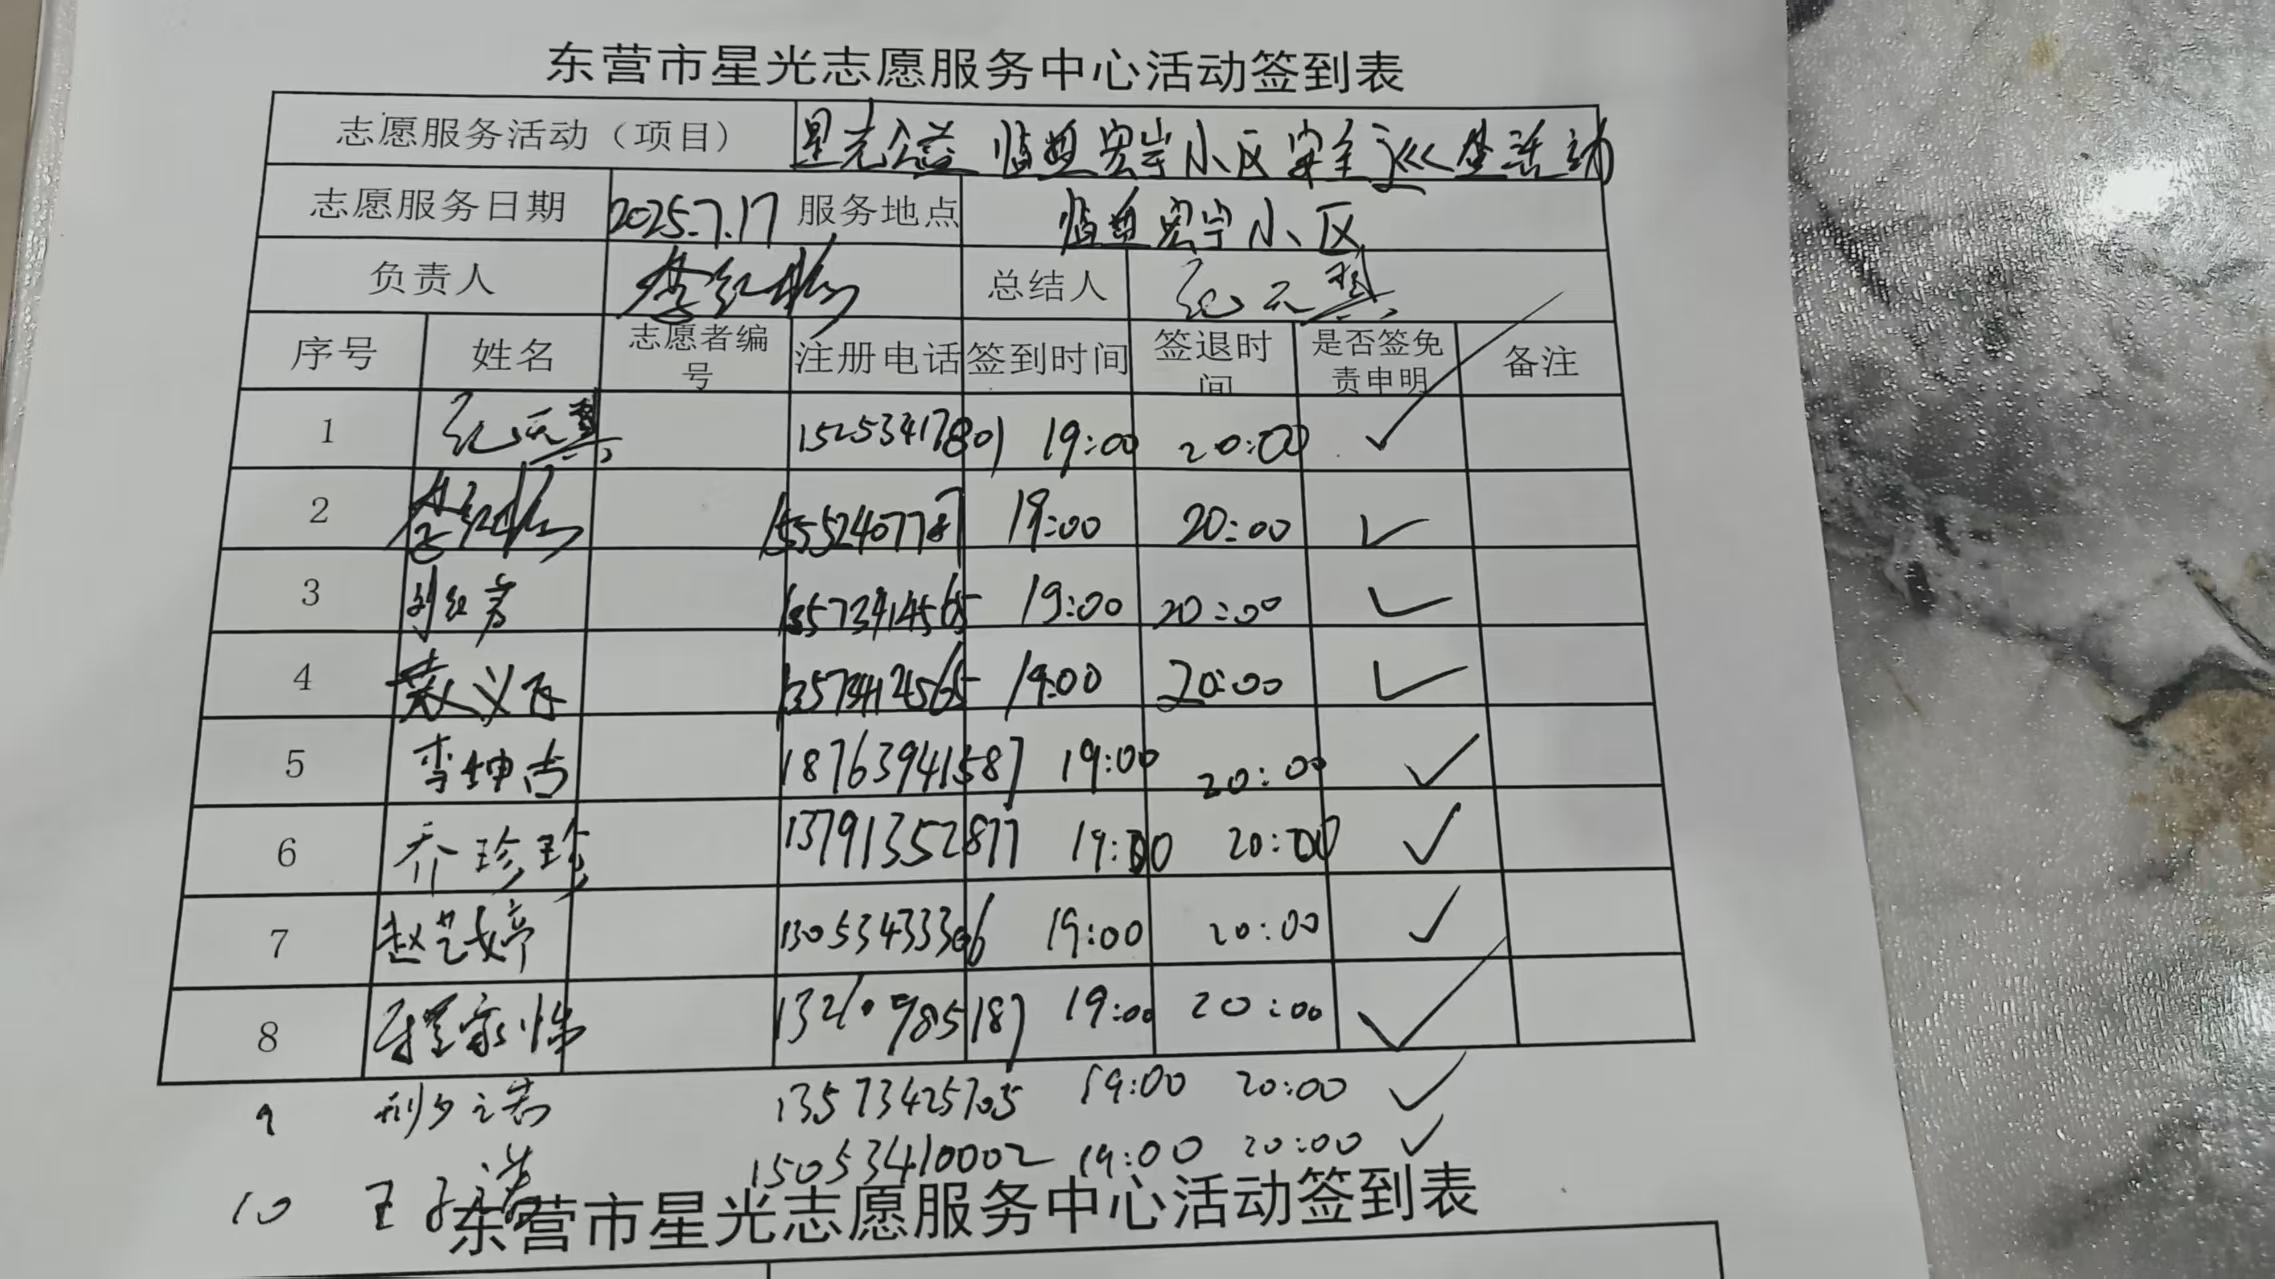 东营市星光志愿服务中心活动签到表
志愿服务活动（项目） 星光公益 临邑宏宇小区安全巡逻活动
志愿服务日期 2025.7.17 服务地点 临邑宏宇小区
负责人 李红梅 总结人 纪元
序号 姓名 志愿者编号 注册电话 签到时间 签退时间 是否签免责申明 备注
1 纪元 15253417801 19:00 20:00 ✓
2 李红梅 15552407787 19:00 20:00 ✓
3 刘红岩 13573414565 19:00 20:00 ✓
4 袁义 13573412565 19:00 20:00 ✓
5 李坤吉 18763941587 19:00 20:00 ✓
6 乔珍珍 13791352877 19:00 20:00 ✓
7 赵艺婷 13053433306 19:00 20:00 ✓
8 家 13210985187 19:00 20:00 ✓
9 13573425705 19:00 20:00 ✓
10 王子诺 15053410002 19:00 20:00 ✓
东营市星光志愿服务中心活动签到表